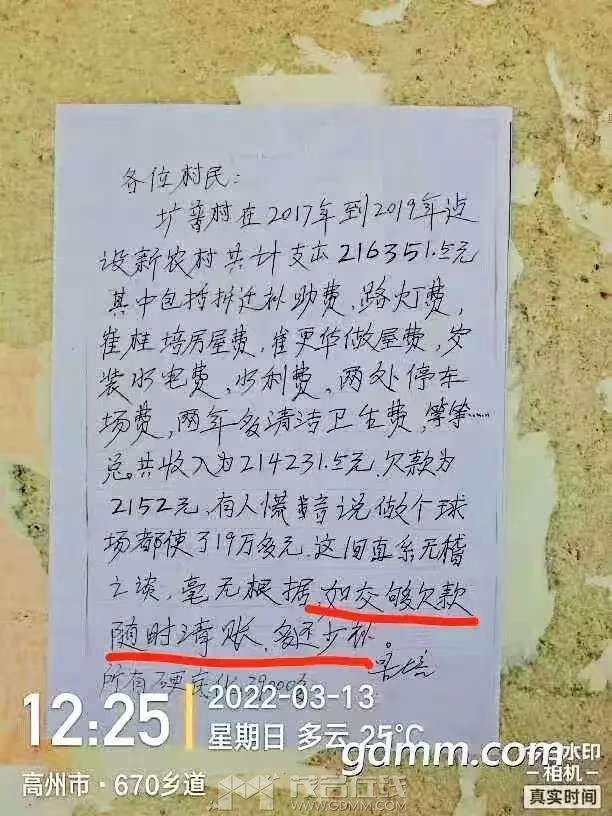 各位村民:
扩涝村在2017年到2019年边
设新农村共计支出216351.5元
其中包括拆迁补助费,路灯费,
崔桂培房屋费,崔更华做屋费,安
装水电费,水利费,两处停车
场费,两年多清洁卫生费,等等……
总共收入为214231.5元.欠款为
2152元,有人慌言说做个球
场都使了19万多元.这间直系无稽
之谈,毫无根据,如交够欠款
随时清账,多还少补。
所有硬底化29000多
12:25
2022-03-13
星期日 多云 25°C
高州市·670乡道
gdmm.com
水印
相机
真实时间
茂名在线
WWW.GDMM.COM